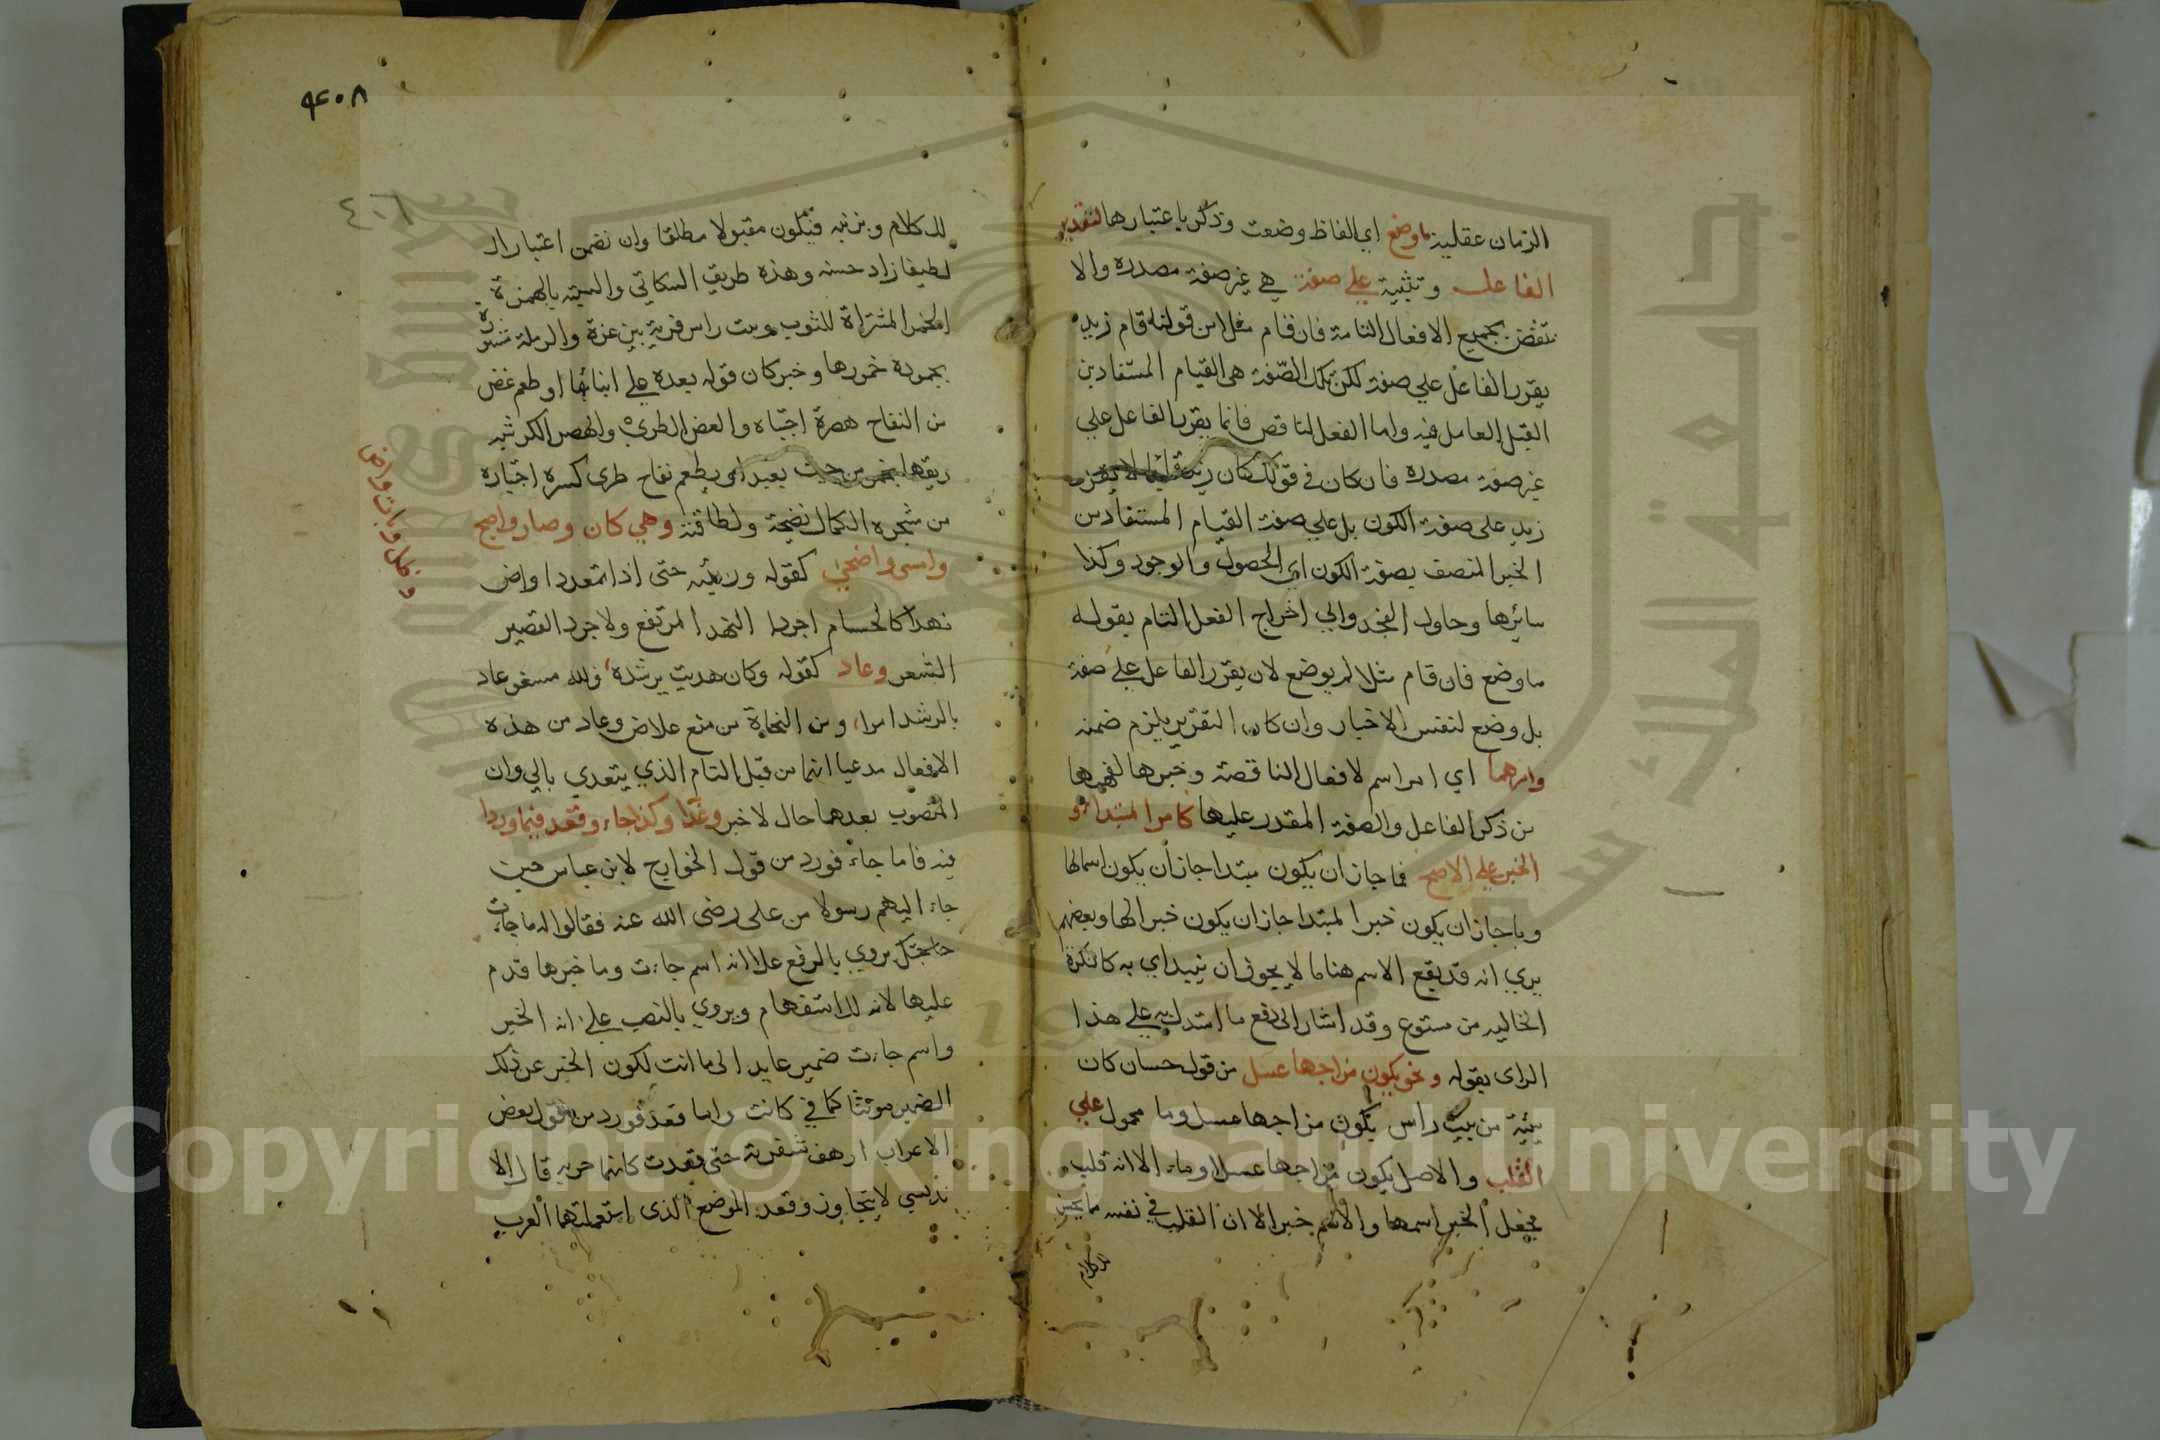 الزمان عقلية ما وضع اي الفاظ وضعت وذكر باعتبارها لتقدير
الفاعل وتثبيته علي صفة هي غير صفة مصدره والا
تنتقض بجميع الافعال التامة فان قام مثلا من قولنا قام زيد
يقرر الفاعل علي صفة لكن تلك الصفة هي القيام المستفاد من
الفعل العامل فيه واما الفعل الناقص فانما يقرر الفاعل علي
غير صفة مصدره فان كان في قولك كان زيد قائما لا يقرر
زيد علي صفة الكون بل علي صفة القيام المستفاد من
الخبر المتصف بصفة الكون اي الحصول والوجود وكذا
سائرها وحاول الفجدواني اخراج الفعل التام بقوله
ما وضع فان قام مثلا لم يوضع لان يقرر الفاعل علي صفة
بل وضع لنفس الاخبار وان كان التقرير يلزم ضمنه
وامرهما اي امر اسم لافعال الناقصة وخبرها لفهمها
من ذكر الفاعل والصفة المقدر عليها كامر المبتداء و
الخبر علي الاصح فما جاز ان يكون مبتدا جاز ان يكون اسمالها
وما جاز ان يكون خبرا لمبتدا جاز ان يكون خبرا لها وبعضهم
يري انه قد يقع الاسم هنا ما لا يجوز ان يبتداي به كالنكرة
الخاليه من مسوغ وقد اشار الي دفع ما استدل به علي هذا
الراي بقوله ونحو يكون مزاجها عسل من قول حسان كان
سبئة من بيت راس يكون مزاجها عسل وما محمول علي
القلب والاصل يكون مزاجها عسلا وماء الا انه قلب
فجعل الخبر اسمها والاسم خبرا الا ان القلب في نفسه مما يحسن
للكلام
٤٠٨
٤٠٦
للكلام ويزينه فيكون مقبولا مطلقا وان تضمن اعتبارا
لطيفا زاد حسنه وهذه طريق السكاكي والسبئه بالهمزة
الخمر المشتراة للشرب وبيت راس قرية بين غزة والرملة شهرة
بجودة خمورها وخبر كان قوله بعده علي انيابها او طعم غض
من التفاح هصرة اجتباه والغض الطري والهصر الكسر شبه
ريقها بخمر من حيث بعبد او بطعم تفاح طري كسره اجتباره
من شجره الكمال نضجة ولطافته وهي كان وصار واصبح
وامسي واضحي كقوله وربيته حتي اذا تمعددا واض
نهدا كالحسام اجردا النهد المرتفع ولاجرد القصير
الشعر وعاد كقوله وكان هديت يرشده فلله مسغو عاد
بالرشد امرا ومن النحاة من منع علاض وعاد من هذه
الافعال مدعيا انهما من قبل التام الذي يتعدي بالي وان
المنصوب بعدهما حال لا خبر وغدا وكذا جاء وقعد فيما وردا
فيه فاما جاء فورد من قول الخوارج لابن عباس حيث
جاء اليهم رسولا من علي رضي الله عنه فقالوا له ما جات
حاجتك يروي بالرفع علا انه اسم جاءت وما خبرها قدم
عليها لانه للاستفهام ويروي بالنصب علي انه الخبر
واسم جاءت ضمير عايد الي ما انت لكون الخبر عن ذلك
الضمير مونثا كما في كانت واما قعد فورد من قول بعض
الاعراب ارهف شفرته حتي قعدت كانها حربه قال الا
ندلسي لا يتجاوز وقعد الموضع الذي استعملتهما العرب
وظل وبات واض